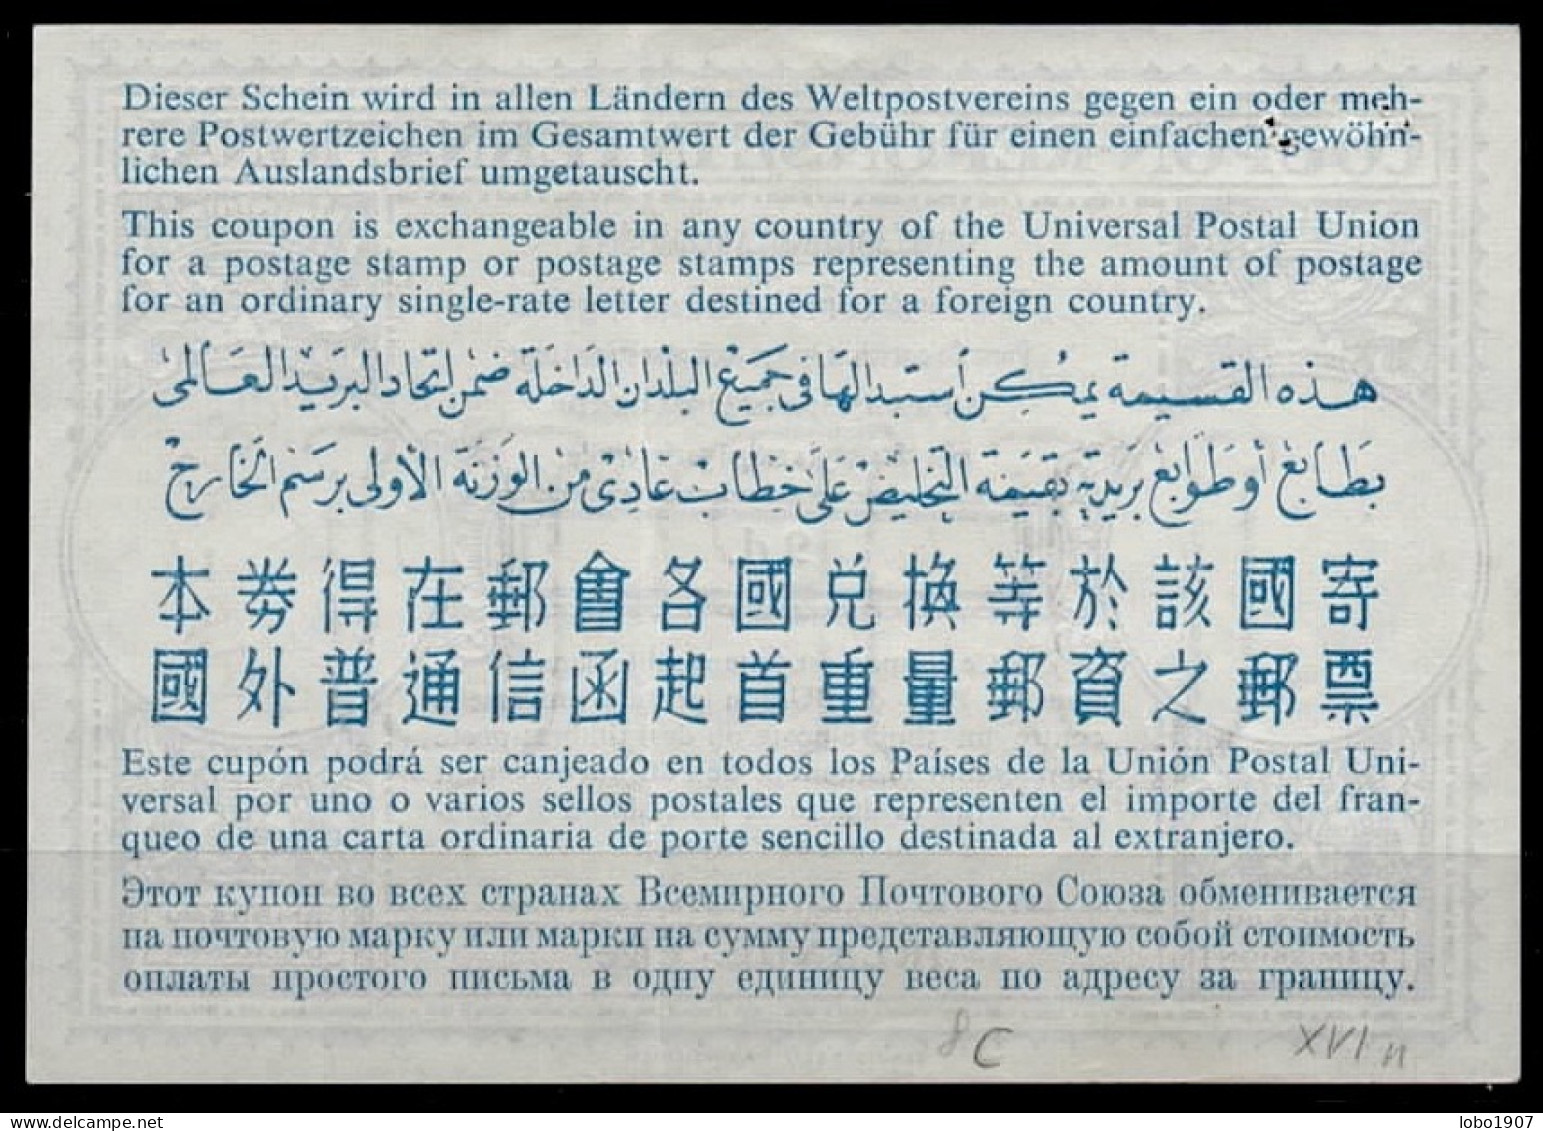 Dieser Schein wird in allen Ländern des Weltpostvereins gegen ein oder meh-
rere Postwertzeichen im Gesamtwert der Gebühr für einen einfachen gewöhn-
lichen Auslandsbrief umgetauscht.
This coupon is exchangeable in any country of the Universal Postal Union
for a postage stamp or postage stamps representing the amount of postage
for an ordinary single-rate letter destined for a foreign country.
هذه القسيمة يمكن استبدالها في جميع البلدان الداخلة ضمن اتحاد البريد العالمى
بطابع أو طوابع بريدية بقيمة التخليص على خطاب عادى من الوزنة الأولى برسم الخارج
本券得在郵會各國兌換等於該國寄
國外普通信函起首重量郵資之郵票
Este cupón podrá ser canjeado en todos los Países de la Unión Postal Uni-
versal por uno o varios sellos postales que representen el importe del fran-
queo de una carta ordinaria de porte sencillo destinada al extranjero.
Этот купон во всех странах Всемирного Почтового Союза обменивается
на почтовую марку или марки на сумму представляющую собой стоимость
оплаты простого письма в одну единицу веса по адресу за границу.
8C XVI n
www.delcampe.net
lobo1907